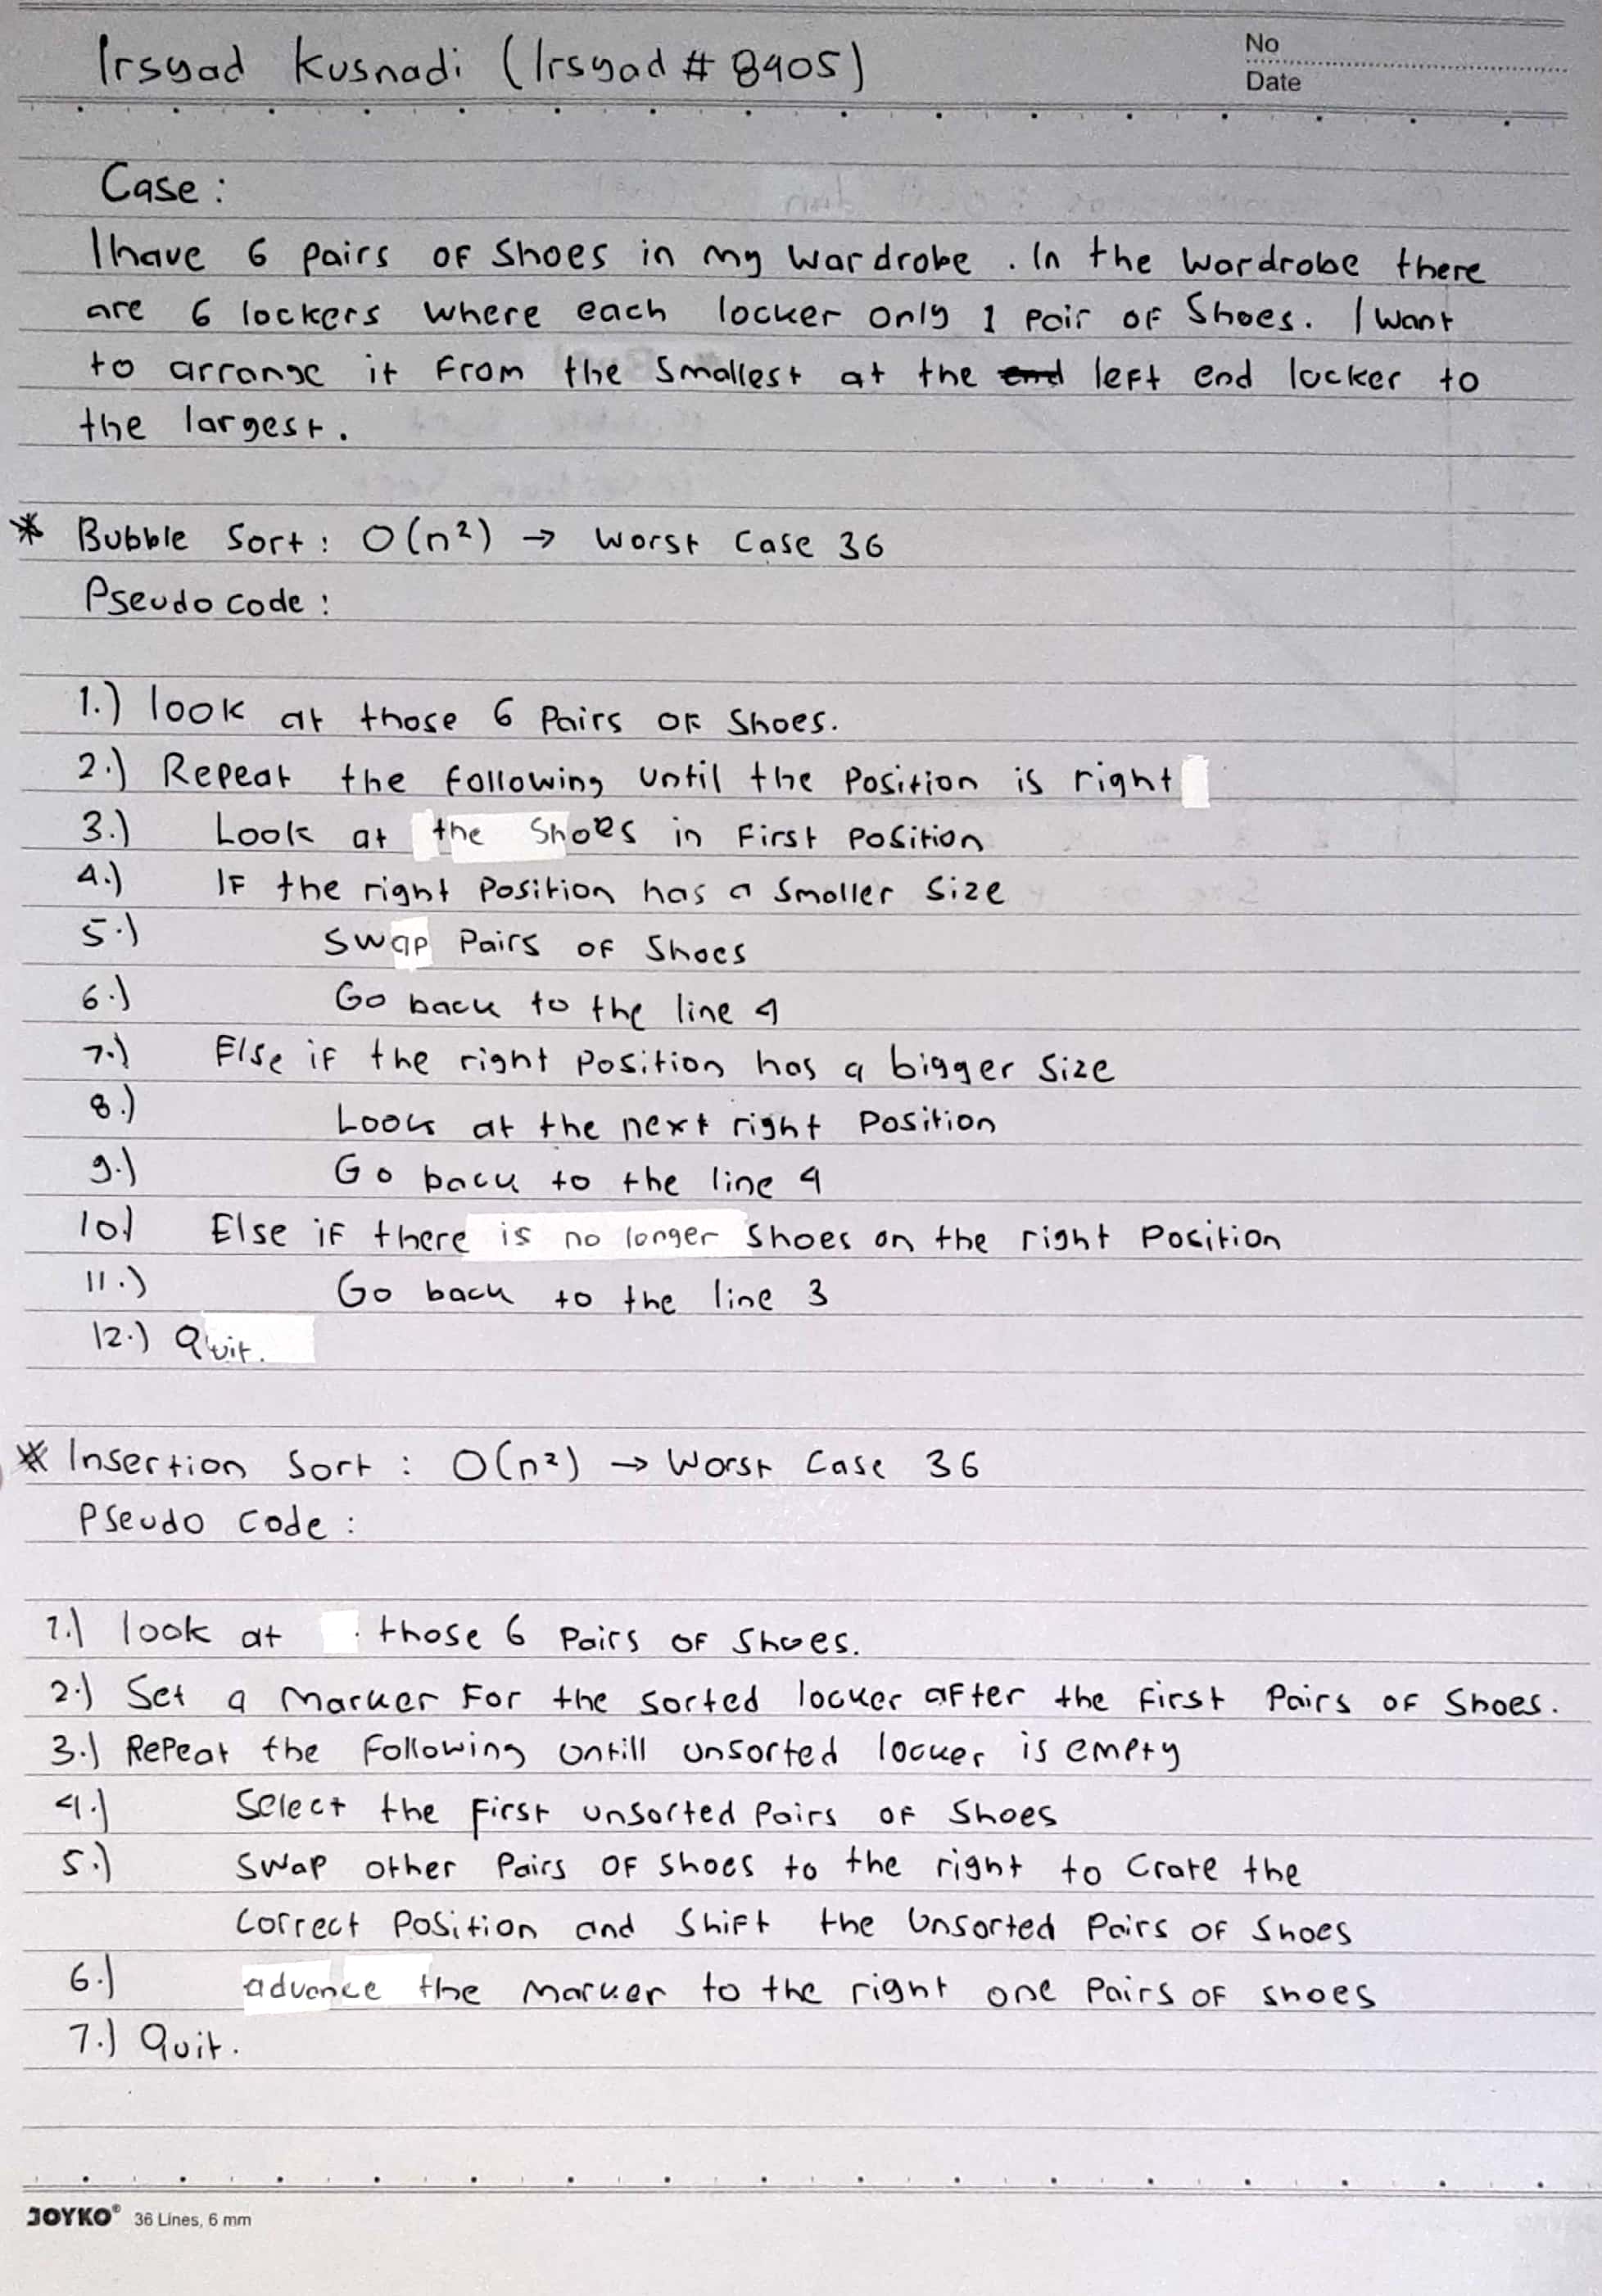 Irsyad Kusnadi (Irsyad # 8405)
No
Date
Case :
I have 6 pairs of shoes in my wardrobe . In the wardrobe there
are 6 lockers where each locker only 1 pair of shoes. I want
to arrange it from the smallest at the end left end locker to
the largest.
* Bubble Sort : O(n²) → Worst Case 36
Pseudo code :
1.) look at those 6 Pairs of Shoes.
2.) Repeat the following until the position is right
3.) Look at the shoes in first position
4.) IF the right position has a smaller size
5.) Swap Pairs of Shoes
6.) Go back to the line 4
7.) Else if the right position has a bigger size
8.) Look at the next right position
9.) Go back to the line 4
10.) Else if there is no longer shoes on the right position
11.) Go back to the line 3
12.) Quit.
* Insertion Sort : O(n²) → Worst Case 36
Pseudo code :
1.) look at those 6 Pairs of Shoes.
2.) Set a marker for the sorted locker after the first Pairs of Shoes.
3.) Repeat the following untill unsorted locker is empty
4.) Select the first unsorted Pairs of Shoes
5.) Swap other Pairs of Shoes to the right to Crate the
correct position and shift the Unsorted Pairs of Shoes
6.) advance the marker to the right one Pairs of shoes
7.) Quit.
JOYKO® 36 Lines, 6 mm